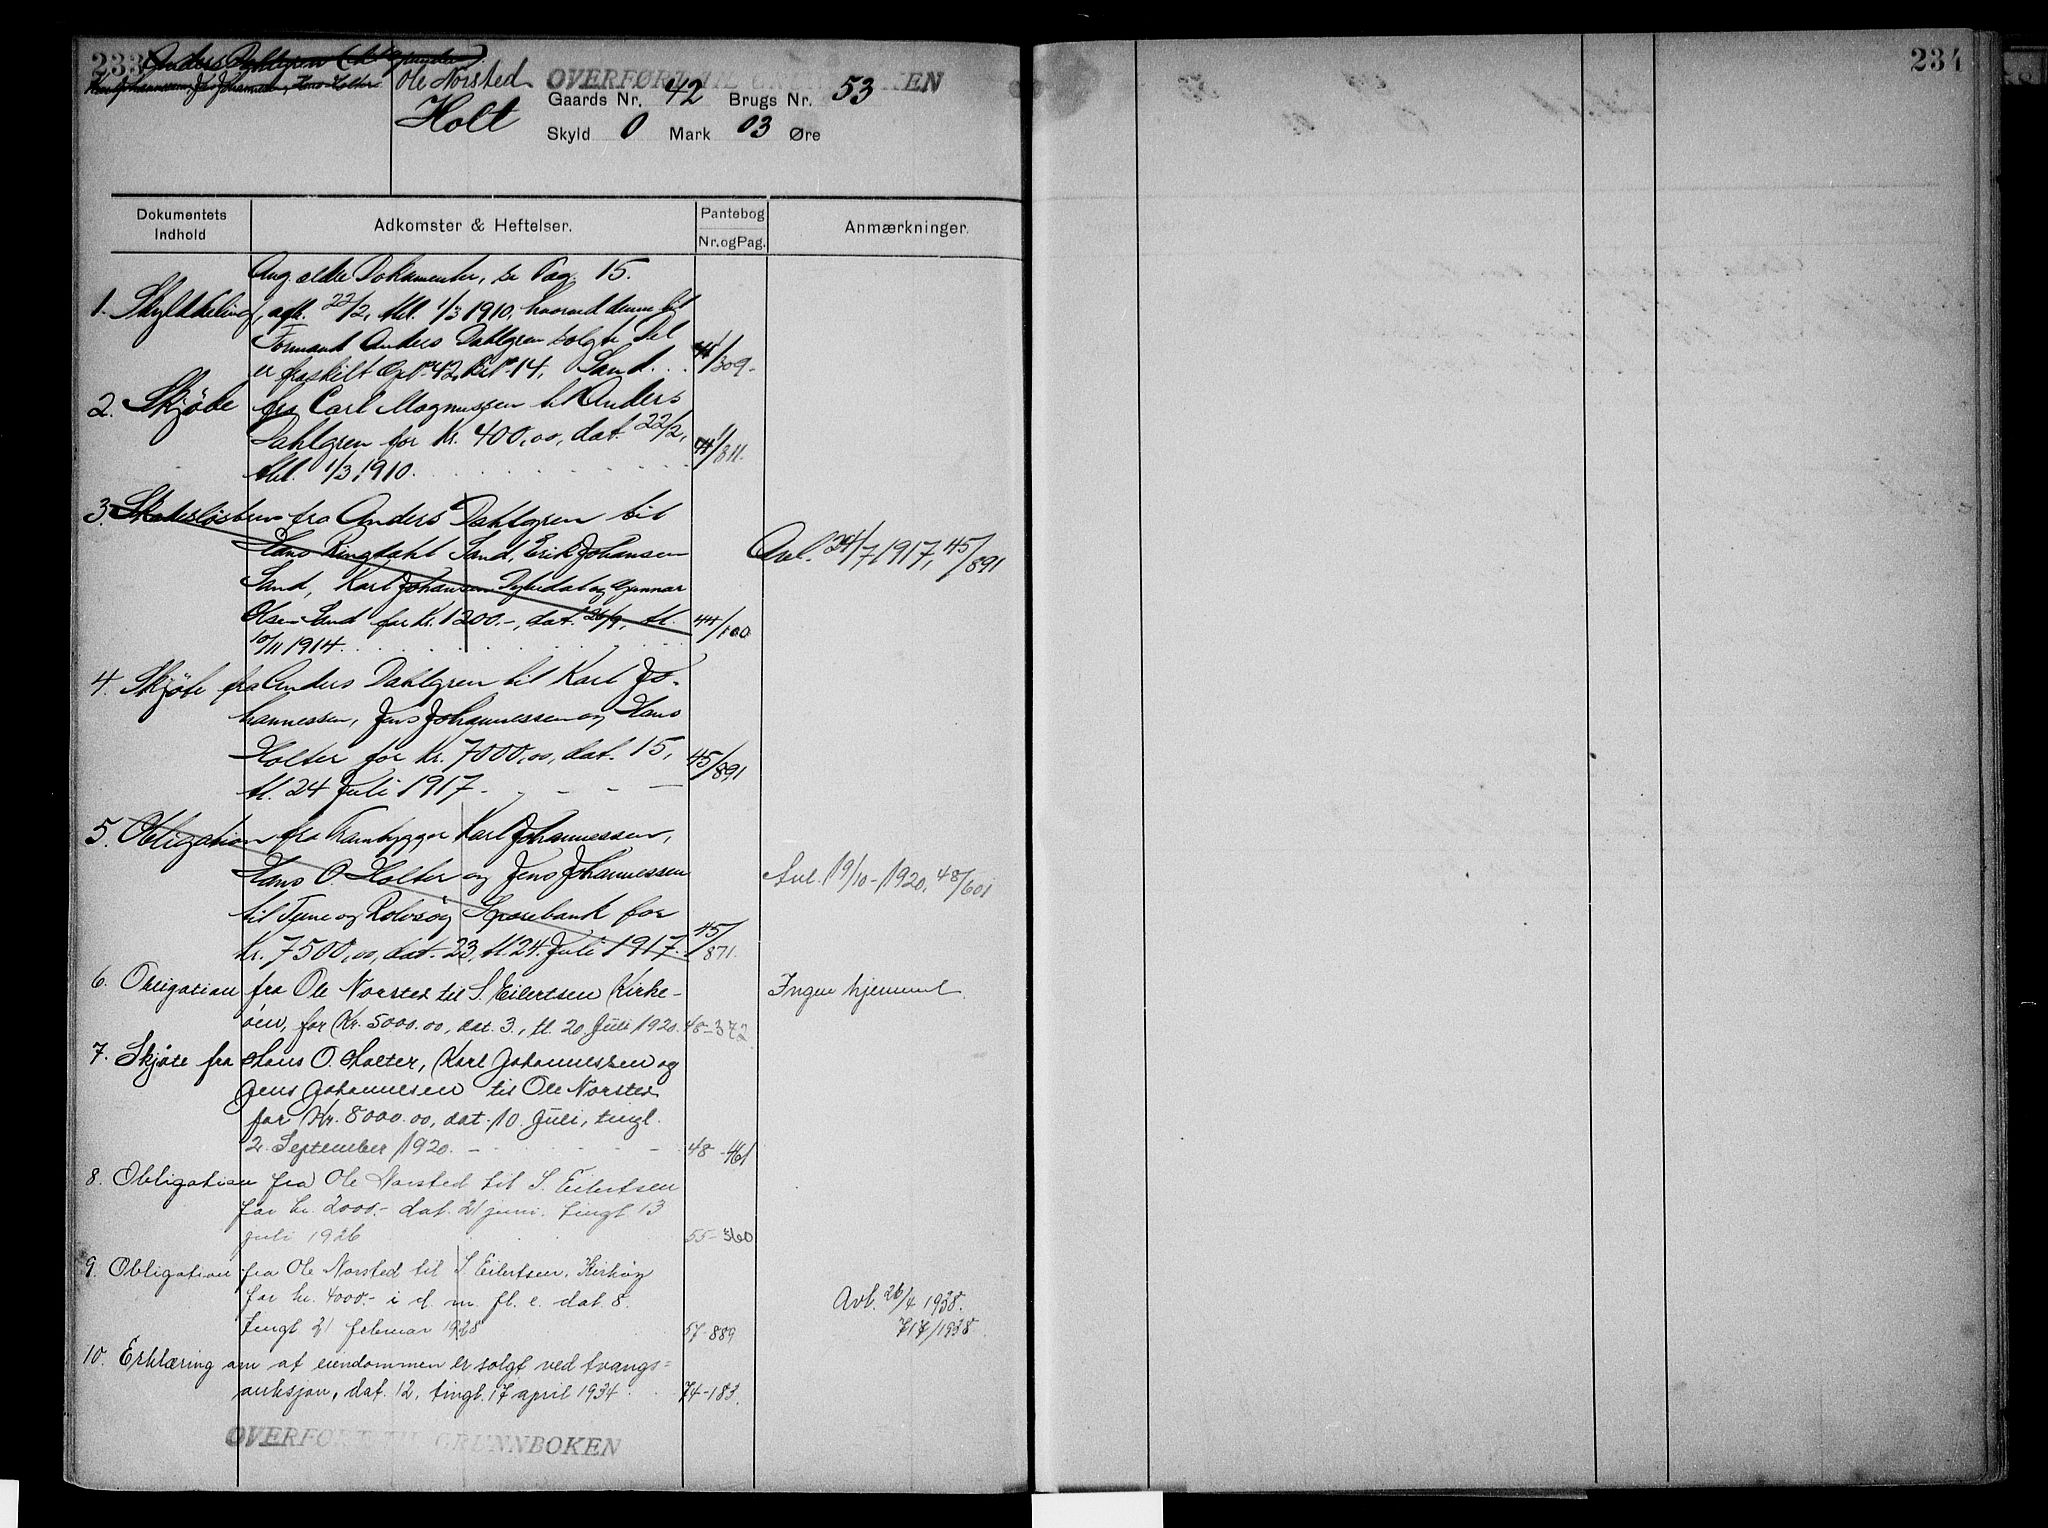 233 Anders Dahlgren
Karl Johannessen, Jens Johannessen, Hans Holter
Ole Norsted
Holt
OVERFØRT TIL GRUNNBOKEN
Gaards Nr. 42 Brugs Nr. 53
Skyld 0 Mark 03 Øre
234
Dokumentets Indhold
Adkomster & Heftelser.
Pantebog
Nr. og Pag.
Anmærkninger.
Ang. eldre Dokumenter, se Pag. 15.
1. Skylddeling, afh. 22/2, thl. 1/3 1910, hvorved denne til
Formand Anders Dahlgren solgte Del
er fraskilt Gr. no 42, Br. no 14, Sand. 41/309.
2. Skjøte fra Carl Magnussen til Anders
Dahlgren for Kr. 400,00, dat. 22/2,
thl. 1/3 1910. 41/311.
3. Skadesløsbrev fra Anders Dahlgren til
Hans Ringdahl Sand, Erik Johansen
Sand, Karl Johansen Dybedal og Gunnar
Olsen Sand for Kr. 1200.-, dat. 26/9, tl.
10/11 1914. 44/100
Avl. 24/7 1917, 45/891
4. Skjøte fra Anders Dahlgren til Karl Jo-
hannessen, Jens Johannessen og Hans
Holter for Kr. 7000,00, dat. 15,
tl. 24 Juli 1917. 45/891
5. Obligation fra Karl Johannessen,
Hans O. Holter og Jens Johannessen
til Tune og Rolvsøy Sparebank for
Kr. 7500,00, dat. 23, tl. 24. Juli 1917. 45/871.
Avl. 19/10-1920, 48/601
6. Obligation fra Ole Norsted til S. Eilertsen Kirke-
øen, for Kr. 5000.00, dat. 3., tl. 20. Juli 1920. 48-372
Ingen hjemmel.
7. Skjøte fra Hans O. Holter, Karl Johannessen og
Jens Johannesen til Ole Norsted
for Kr. 8000.00, dat. 10. Juli, tingl.
2. September 1920. 48-461
8. Obligation fra Ole Norsted til S. Eilertsen
for kr. 2000.- dat. 21 juni. tingl. 13
juli 1926 55-360
9. Obligation fra Ole Norsted til S. Eilertsen, Kirkøy
for kr. 4000.- i d. m. fl. e. dat. 8.
tingl. 21 februar 1928 57-889
Avl. 26/4 1938.
717/1938.
10. Erklæring om at eiendommen er solgt ved tvangs-
auksjon, dat. 12. tingl. 17 april 1934. 74-183.
OVERFØRT TIL GRUNNBOKEN